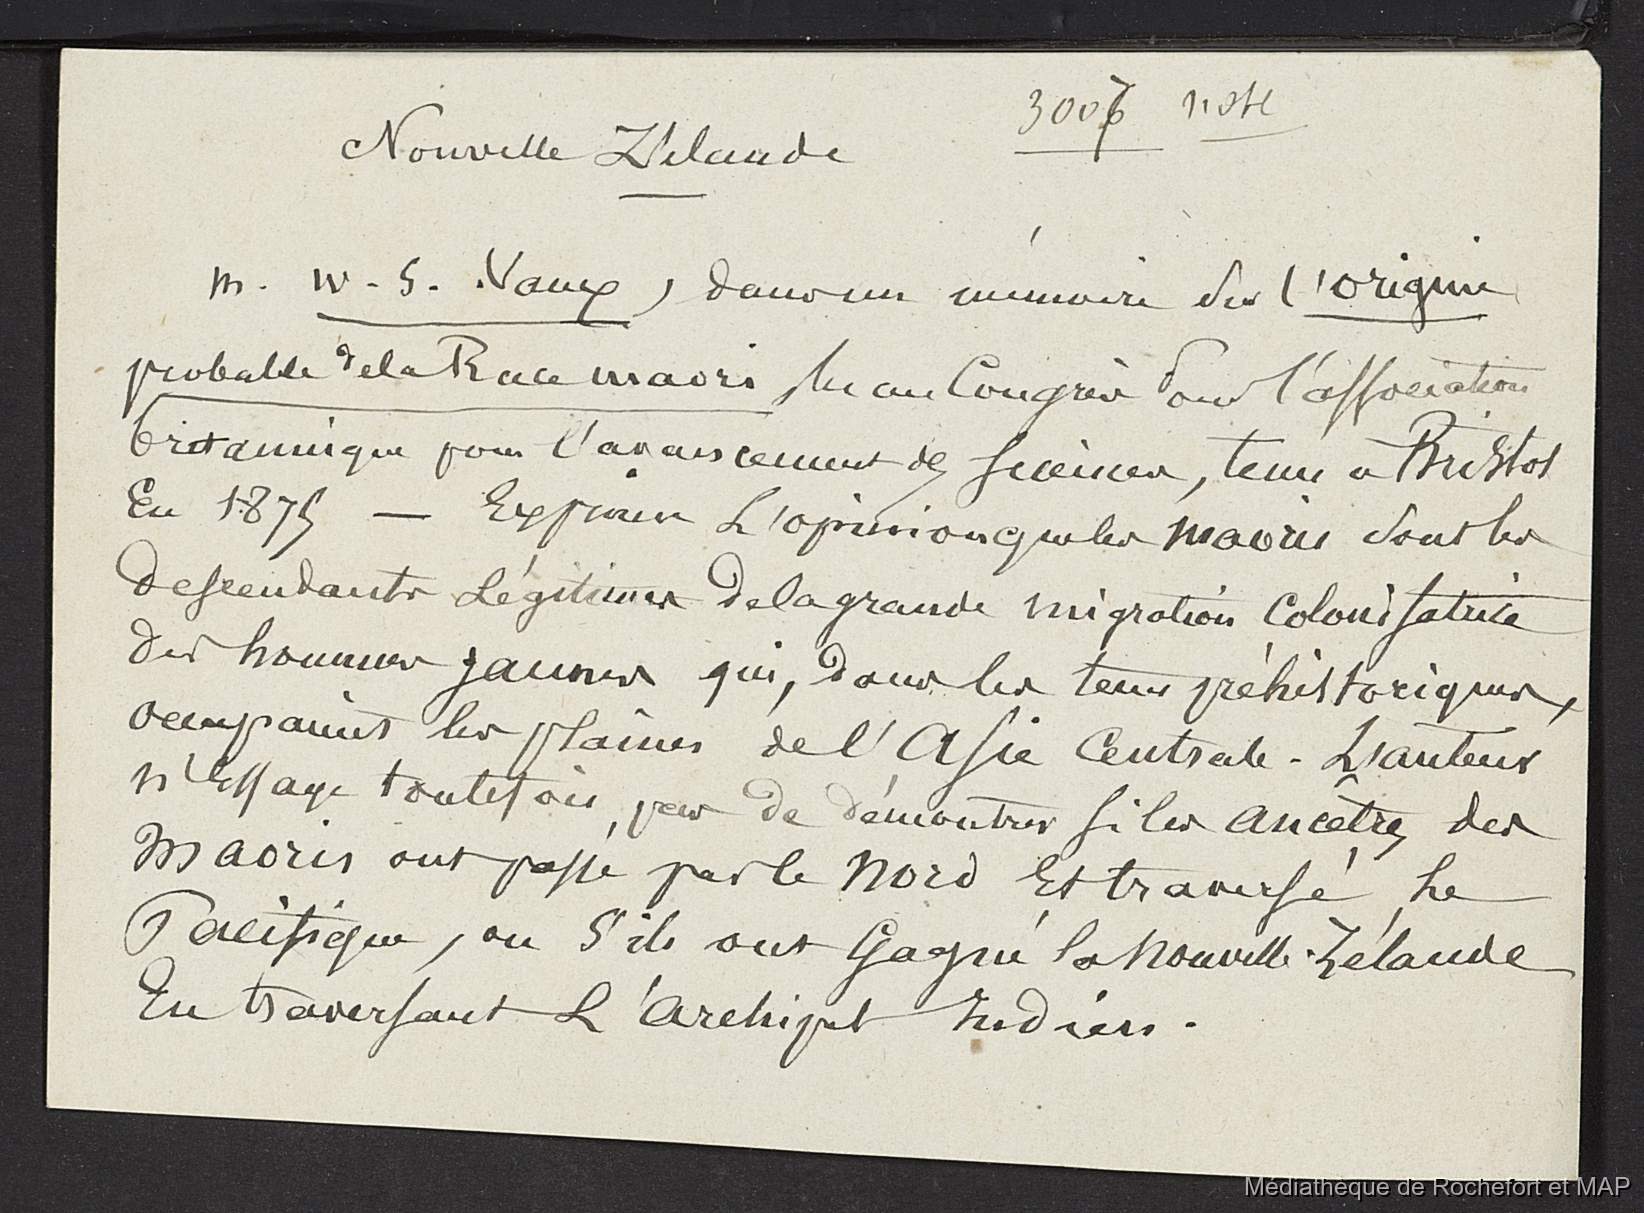 3007 note
Nouvelle Zélande
M. W. S. Vaux, dans un mémoire sur l'origine
probable de la Race maori, lu au Congrès pour l'association
britannique pour l'avancement des Sciences, tenu à Bristol
En 1875 — Exprime L'opinion que les Maoris sont les
descendants Légitimes de la grande migration Colonisatrice
des hommes jaunes qui, dans les tems préhistoriques,
occupaient les plaines de l'Asie Centrale. L'auteur
n'Essaye toutefois, pas de démontrer si les Ancêtres des
Maoris ont passé par le Nord Et traversé Le
Pacifique, ou S'ils ont Gagné la Nouvelle-Zélande
En traversant L'Archipel Indien.
Médiathèque de Rochefort et MAP